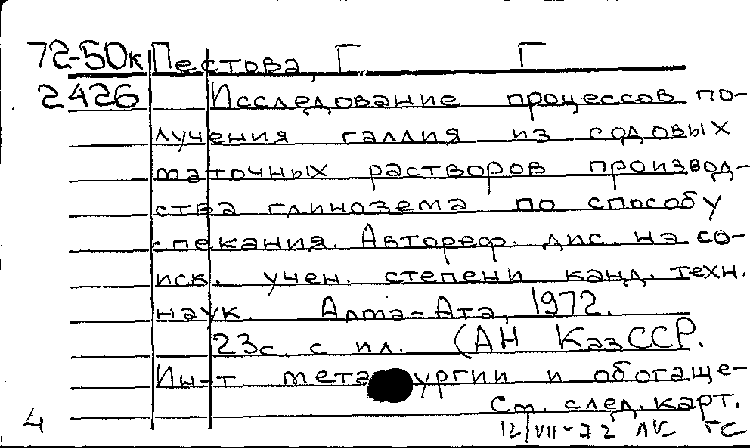 72-50к Пестова, Г Г
2426 Исследование процессов по-
лучения галлия из содовых
маточных растворов производ-
ства глинозема по способу
спекания. Автореф. дис. на со-
иск. учен. степени канд. техн.
наук. Алма-Ата, 1972.
23с. с ил. (АН КазССР.
Ин-т мета ургии и обогаще-
См. след. карт.
4 12/VII-72